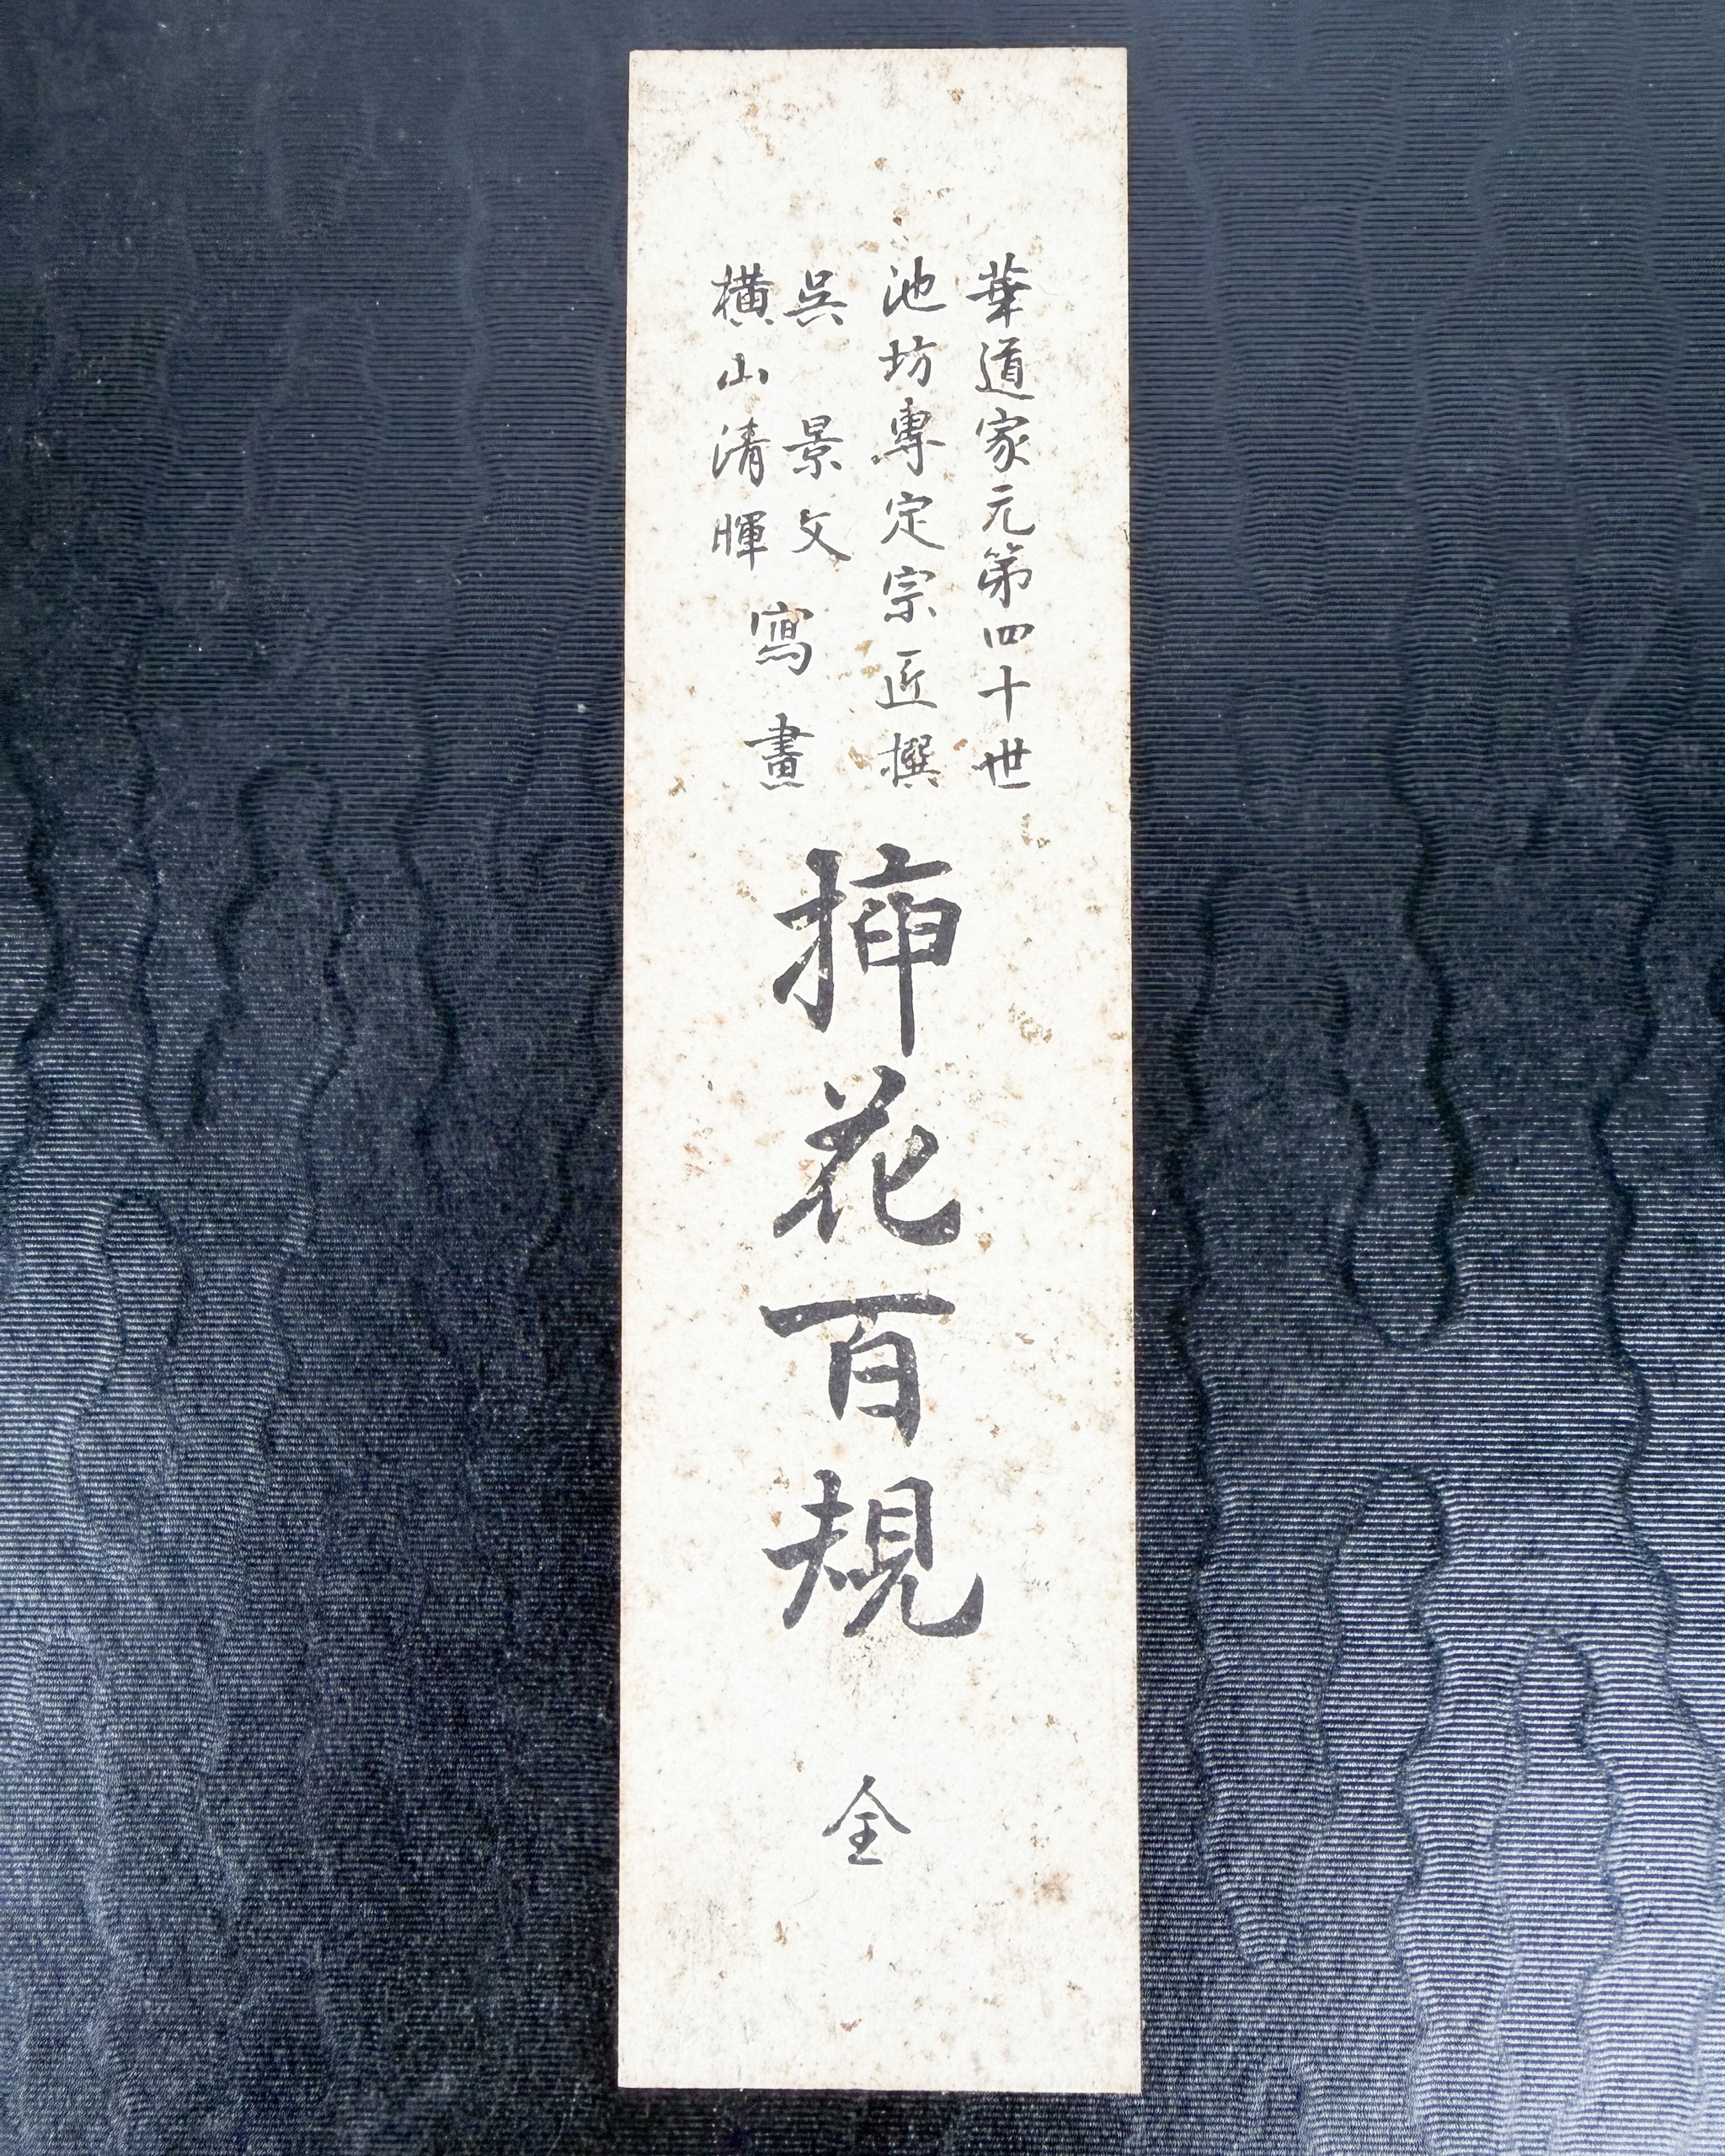 華道家元第四十世
池坊專定宗匠撰
呉景文
横山清暉
寫畫
挿花百規
全